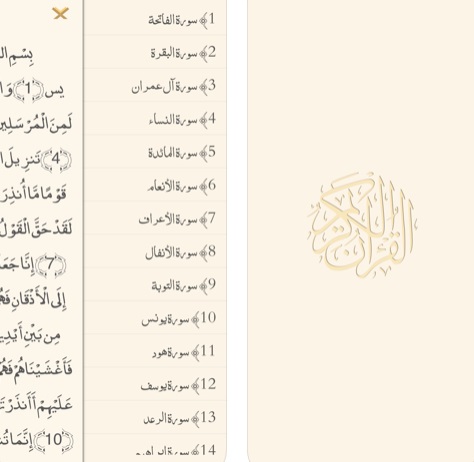 القرآن الكريم
1 سورة الفاتحة
2 سورة البقرة
3 سورة آل عمران
4 سورة النساء
5 سورة المائدة
6 سورة الأنعام
7 سورة الأعراف
8 سورة الأنفال
9 سورة التوبة
10 سورة يونس
11 سورة هود
12 سورة يوسف
13 سورة الرعد
14 سورة ابراهيم
بِسْمِ
يس (1)
لَمِنَ الْمُرْسَلِينَ
(4) تَنزِيلَ
قَوْمًا مَّا أُنذِرَ
لَقَدْ حَقَّ الْقَوْلُ
(7) إِنَّا جَعَ
إِلَى الْأَذْقَانِ فَهُ
مِن بَيْنِ أَيْدِي
فَأَغْشَيْنَاهُمْ فَهُمْ
عَلَيْهِمْ أَأَنذَرْتَ
(10) إِنَّمَا تُ